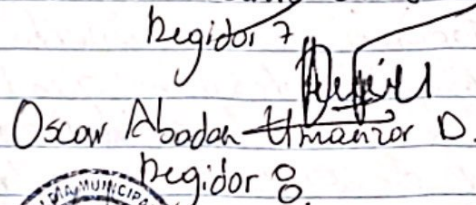 Regidor 7
Oscar Abadan Umanzor D.
Regidor 8
MUNICIPA